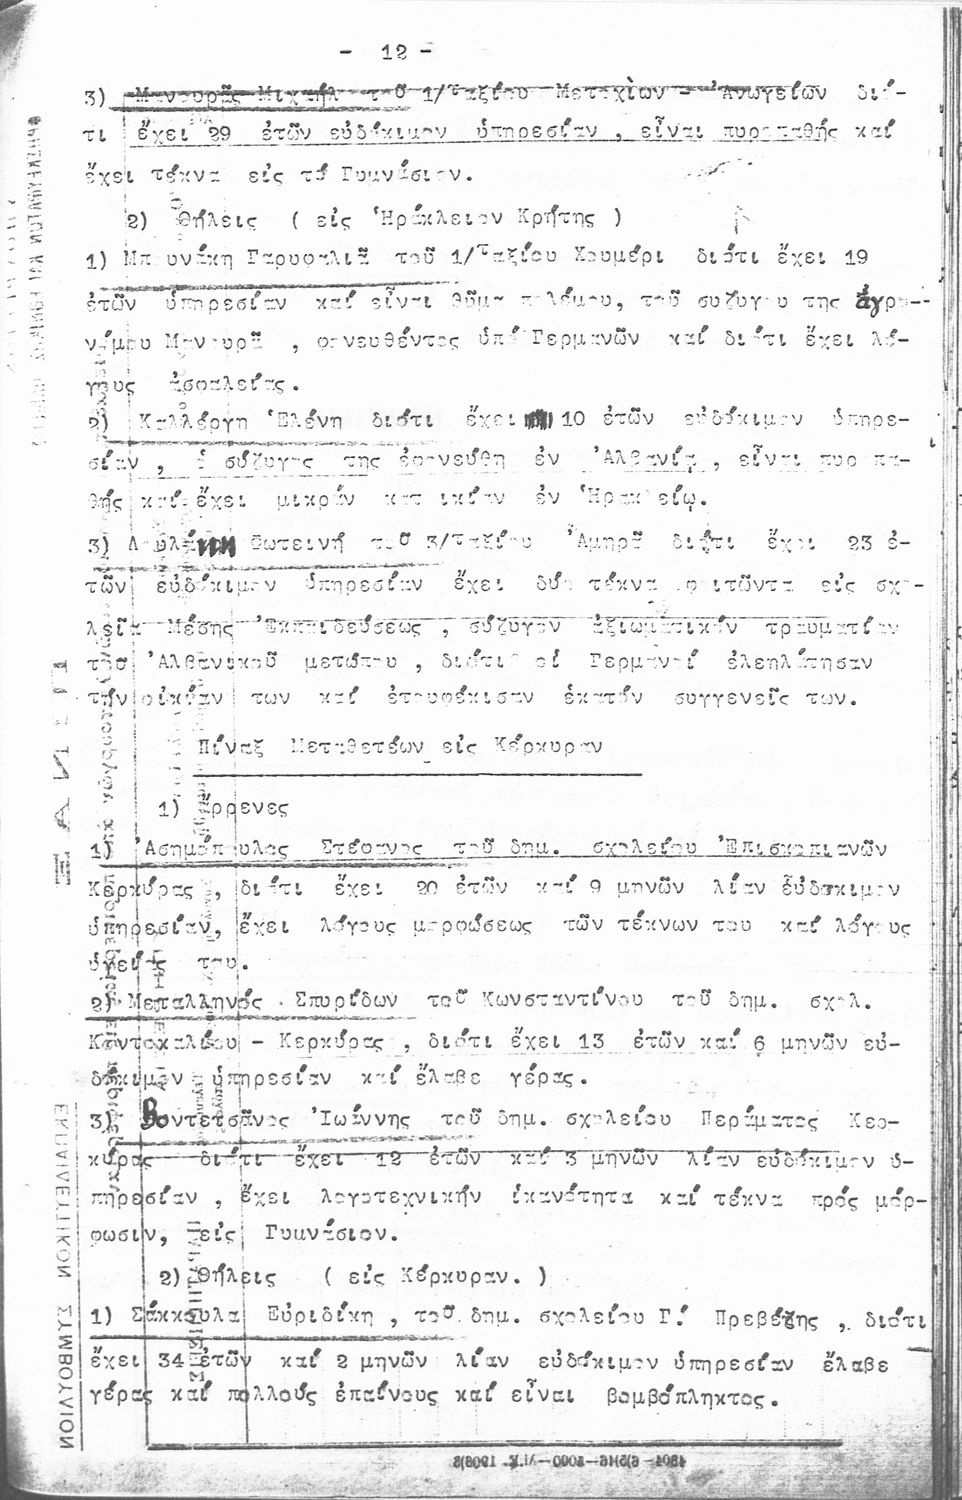 - 12 -
3) Μανουρᾶς Μιχαήλ τοῦ 1/ταξίου Μετοχίων - Ἀνωγείων διό-
τι ἔχει 29 ἐτῶν εὐδόκιμον ὑπηρεσίαν , εἶναι πυροπαθής καί
ἔχει τέκνα εἰς τό Γυμνάσιον.
2) Θήλεις ( εἰς Ἡράκλειον Κρήτης )
1) Μπουνάκη Γαρυφαλιᾶ τοῦ 1/ταξίου Χουμέρι διότι ἔχει 19
ἐτῶν ὑπηρεσίαν καί εἶναι θῦμα πολέμου, τοῦ συζύγου της ἀγρο-
νόμου Μανουρᾶ , φονευθέντος ὑπό Γερμανῶν καί διότι ἔχει λό-
γους ἀσφαλείας.
2) Καλλέργη Ἑλένη διότι ἔχει 10 ἐτῶν εὐδόκιμον ὑπηρε-
σίαν , ὁ σύζυγος της ἐφονεύθη ἐν Ἀλβανίᾳ , εἶναι πυροπα-
θής καί ἔχει μικράν κατοικίαν ἐν Ἡρακλείῳ.
3) Φωτεινή τοῦ 3/ταξίου Ἀμηρᾶ διότι ἔχει 23 ἐ-
τῶν εὐδόκιμον ὑπηρεσίαν ἔχει δύο τέκνα φοιτῶντα εἰς σχο-
λεῖα Μέσης Ἐκπαιδεύσεως , σύζυγον ἀξιωματικόν τραυματίαν
τοῦ Ἀλβανικοῦ μετώπου , διότι οἱ Γερμανοί ἐλεηλάτησαν
τήν οἰκίαν των καί ἐτουφέκισαν ἑκατόν συγγενεῖς των.
Πίναξ Μεταθετέων εἰς Κέρκυραν
1) Ἄρρενες
1) Ἀσημόπουλας Στέφανος τοῦ δημ. σχολείου Ἐπισκοπιανῶν
Κερκύρας , διότι ἔχει 20 ἐτῶν καί 9 μηνῶν λίαν εὐδόκιμον
ὑπηρεσίαν, ἔχει λόγους μορφώσεως τῶν τέκνων του καί λόγους
ὑγείας του.
2) Μεταλληνός Σπυρίδων τοῦ Κωνσταντίνου τοῦ δημ. σχολ.
Κοντοκαλίου - Κερκύρας , διότι ἔχει 13 ἐτῶν καί 6 μηνῶν εὐ-
δόκιμον ὑπηρεσίαν καί ἔλαβε γέρας.
3) Βοντετσᾶνος Ἰωάννης τοῦ δημ. σχολείου Περάματος Κερ-
κύρας διότι ἔχει 12 ἐτῶν καί 3 μηνῶν λίαν εὐδόκιμον ὑ-
πηρεσίαν , ἔχει λογοτεχνικήν ἱκανότητα καί τέκνα πρός μόρ-
φωσιν, εἰς Γυμνάσιον.
2) Θήλεις ( εἰς Κέρκυραν. )
1) Σάκκουλα Εὐριδίκη , τοῦ δημ. σχολείου Γ.΄ Πρεβέζης , διότι
ἔχει 34 ἐτῶν καί 2 μηνῶν λίαν εὐδόκιμον ὑπηρεσίαν ἔλαβε
γέρας καί πολλούς ἐπαίνους καί εἶναι βομβόπληκτος.
ΕΚΠΑΙΔΕΥΤΙΚΟΝ ΣΥΜΒΟΥΛΙΟΝ